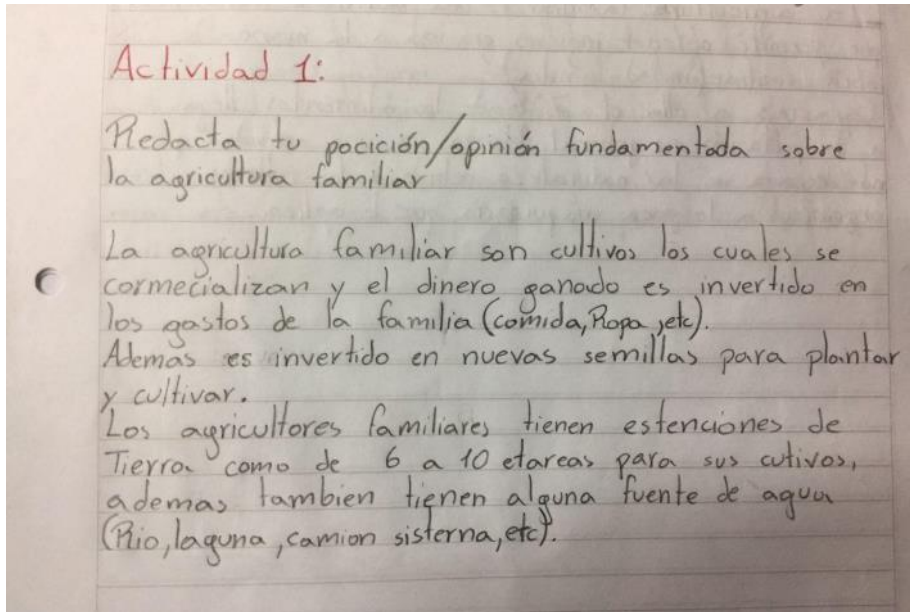 Actividad 1:
Redacta tu pocición/opinión fundamentada sobre
la agricultura familiar
La agricultura familiar son cultivos los cuales se
cormecializan y el dinero ganado es invertido en
los gastos de la familia (comida, Ropa, etc).
Ademas es invertido en nuevas semillas para plantar
y cultivar.
Los agricultores familiares tienen estenciones de
Tierra como de 6 a 10 etareas para sus cutivos,
ademas tambien tienen alguna fuente de agua
(Rio, laguna, camion sisterna, etc).